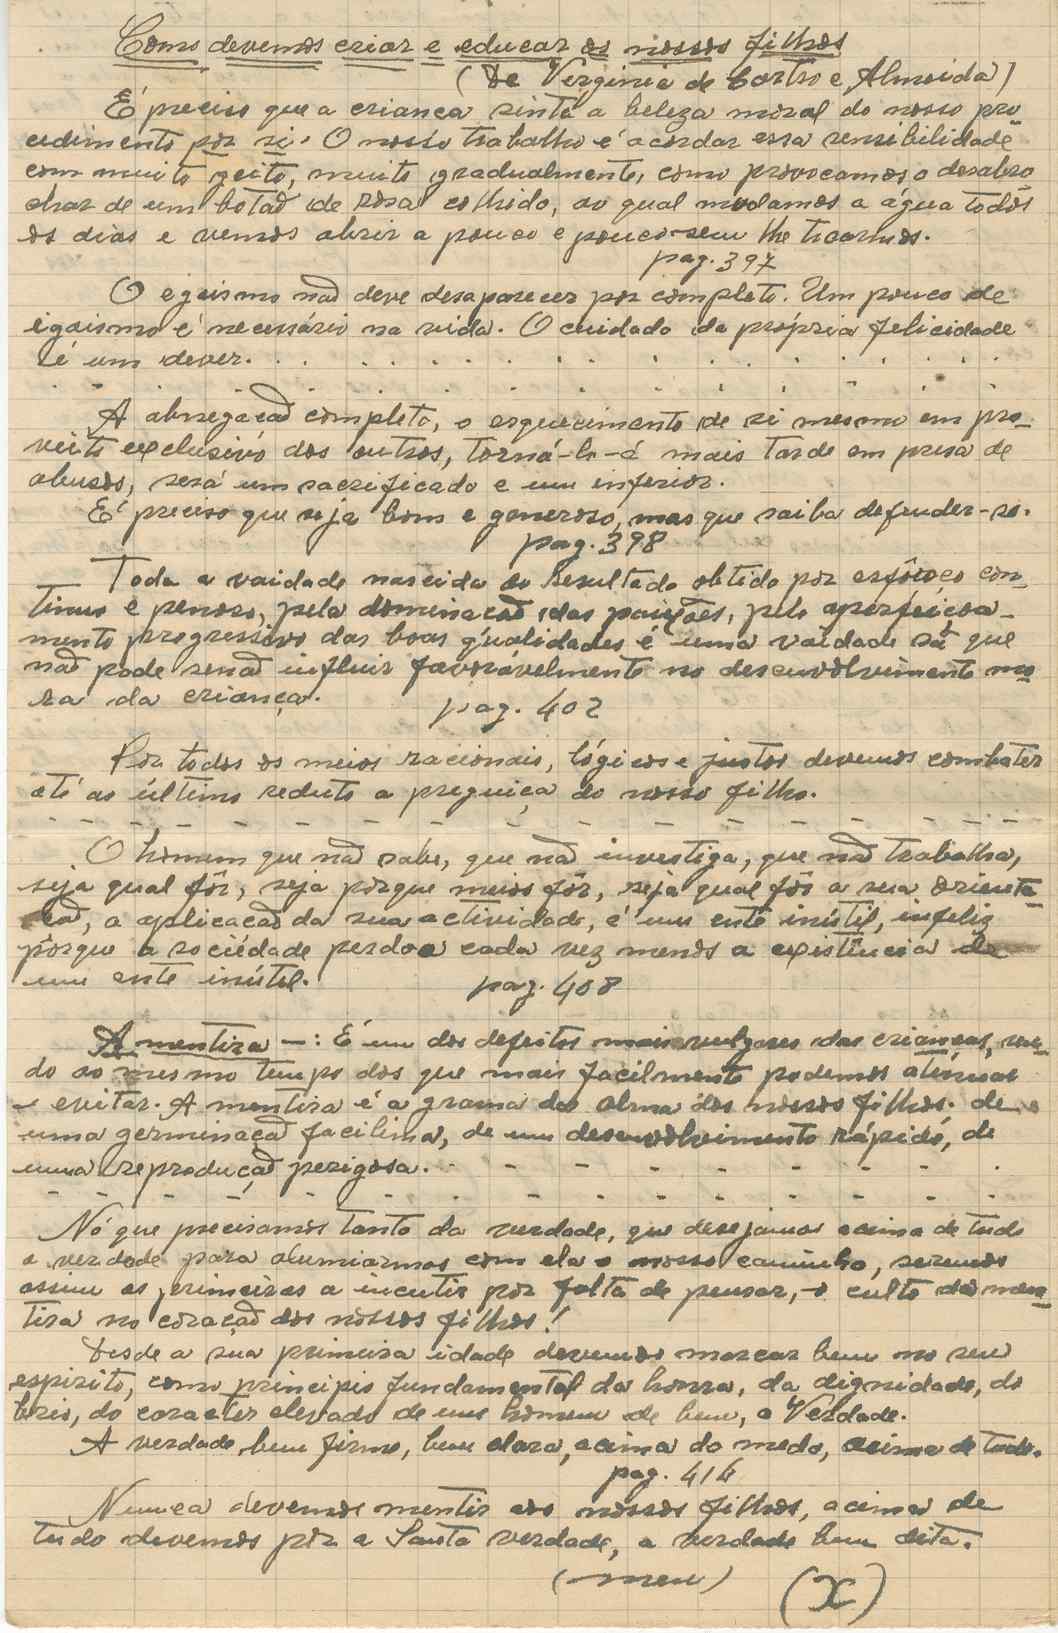 Como devemos criar e educar os nossos filhos
(De Verginia de Castro e Almeida)
É preciso que a criança sinta a beleza moral do nosso pro-
cedimento por si. O nosso trabalho é acordar essa sensibilidade
com muito geito, muito gradualmente, como provocamos o desabro
char de um botaõ de rosa colhido, ao qual mudamos a água todos
os dias e vemos abrir a pouco e pouco sem lhe tocarmos.
pag. 397
O egoismo naõ deve desaparecer por completo. Um pouco de
egoismo é necessário na vida. O cuidado da própria felicidade
é um dever. . . . . . . . . . . . . .
A abnegaçaõ completa, o esquecimento de si mesmo em pro-
veito exclusivo dos outros, torná-lo-á mais tarde em presa de
abusos, será um sacrificado e um inferior.
É preciso que seja bom e generoso, mas que saiba defender-se.
pag. 398
Toda a vaidade nascida do resultado obtido por esfôrço con-
tinuo e penoso, pela dominaçaõ das paixões, pelo aperfeiçoa-
mento progressivo das boas qualidades é uma vaidade sã que
naõ pode senaõ influir favorávelmente no desenvolvimento mo
ra da criança.
pag. 402
Por todos os meios racionais, lógicos e justos devemos combater
até ao último reduto a preguiça do nosso filho.
- - - - - - - - - - - - - - -
O homem que naõ sabe, que naõ investiga, que naõ trabalha,
seja qual fôr, seja porque meios fôr, seja qual fôr a sua orienta
çaõ, a aplicaçaõ da sua actividade, é um ente inútil, infeliz
porque a sociedade perdoa cada vez menos a existência de
um ente inútil.
pag. 408
A mentira -: É um dos defeitos mais vulgares das crianças, sen-
do ao mesmo tempo dos que mais facilmente podemos atenuar
e evitar. A mentira é a grama da alma dos nossos filhos. de
uma germinaçaõ facilima, de um desenvolvimento rápido, de
uma reproduçaõ perigosa. . - - - - - - .
- - - - - - - - - - - - - - -
Nó que precisamos tanto da verdade, que desejamos acima de tudo
a verdade para alumiarmos com ela o nosso caminho, seremos
assim os primeiros a incutir por falta de pensar, o culto da men-
tira no coraçaõ dos nossos filhos!
Desde a sua primeira idade devemos marcar bem no seu
espirito, como principio fundamental da honra, da dignidade, do
brio, do caracter elevado de um homem de bem, a Verdade.
A verdade, bem firme, bem clara, acima do medo, acima de tudo.
pag. 414
Nunca devemos mentir aos nossos filhos, acima de
tudo devemos pôr a Santa verdade, a verdade bem dita.
(meu) (X)